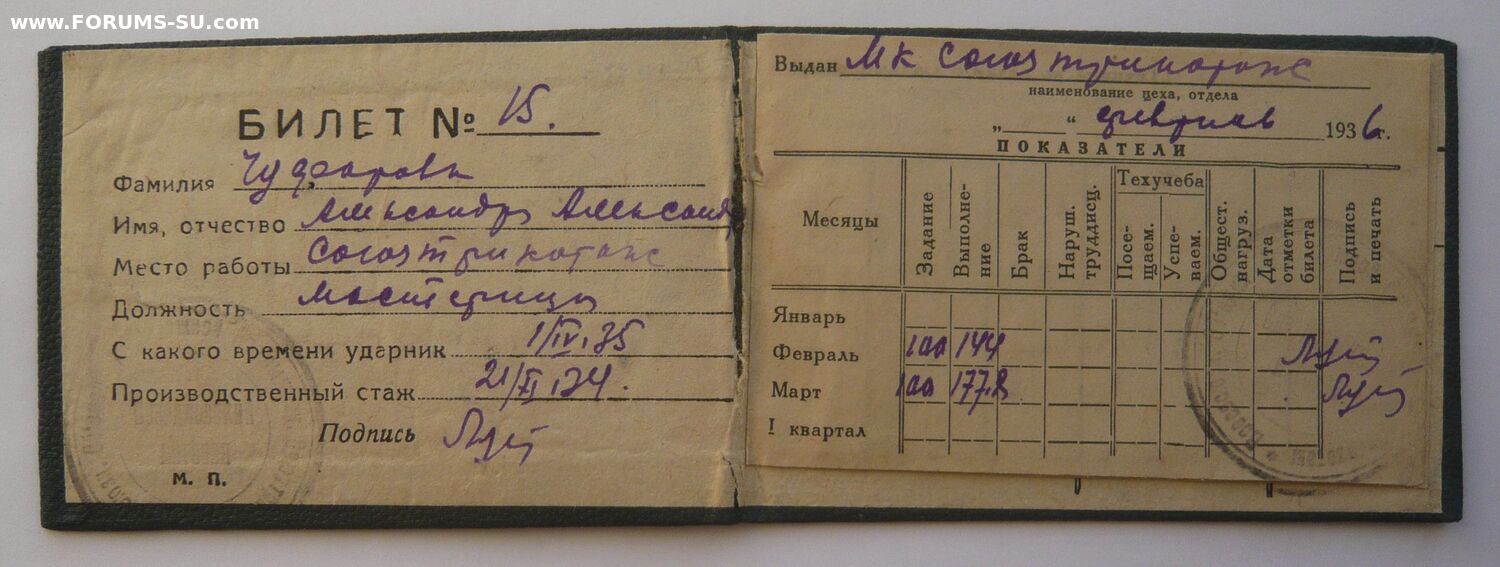 www.FORUMS-SU.com
БИЛЕТ № 15.
Фамилия
Имя, отчество Александра Александ
Место работы Союзтрикотаж
Должность мастерица
С какого времени ударник 1/IV.35
Производственный стаж 21/XI.34.
Подпись
М. П.
Выдан МК Союзтрикотаж
наименование цеха, отдела
„ “ февраль 1936г.
ПОКАЗАТЕЛИ
Месяцы Задание Выполне-ние Брак Наруш. труддисц. Техучеба Посе-щаем. Успе-ваем. Общест. нагруз. Дата отметки билета Подпись и печать
Январь
Февраль 100 144
Март 100 177.8
I квартал